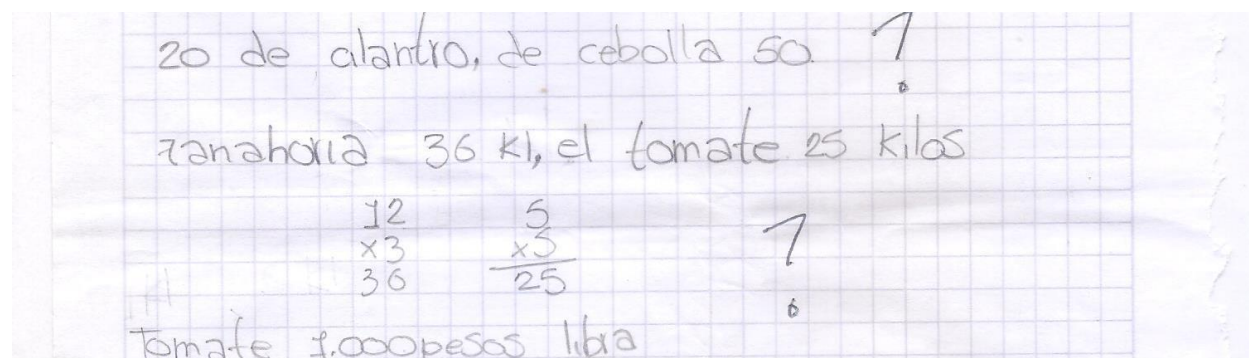 20 de cilantro, de cebolla 50. ?
zanahoria 36 kl, el tomate 25 kilos
12 5
x3 x5 ?
36 25
Tomate 1.000 pesos libra